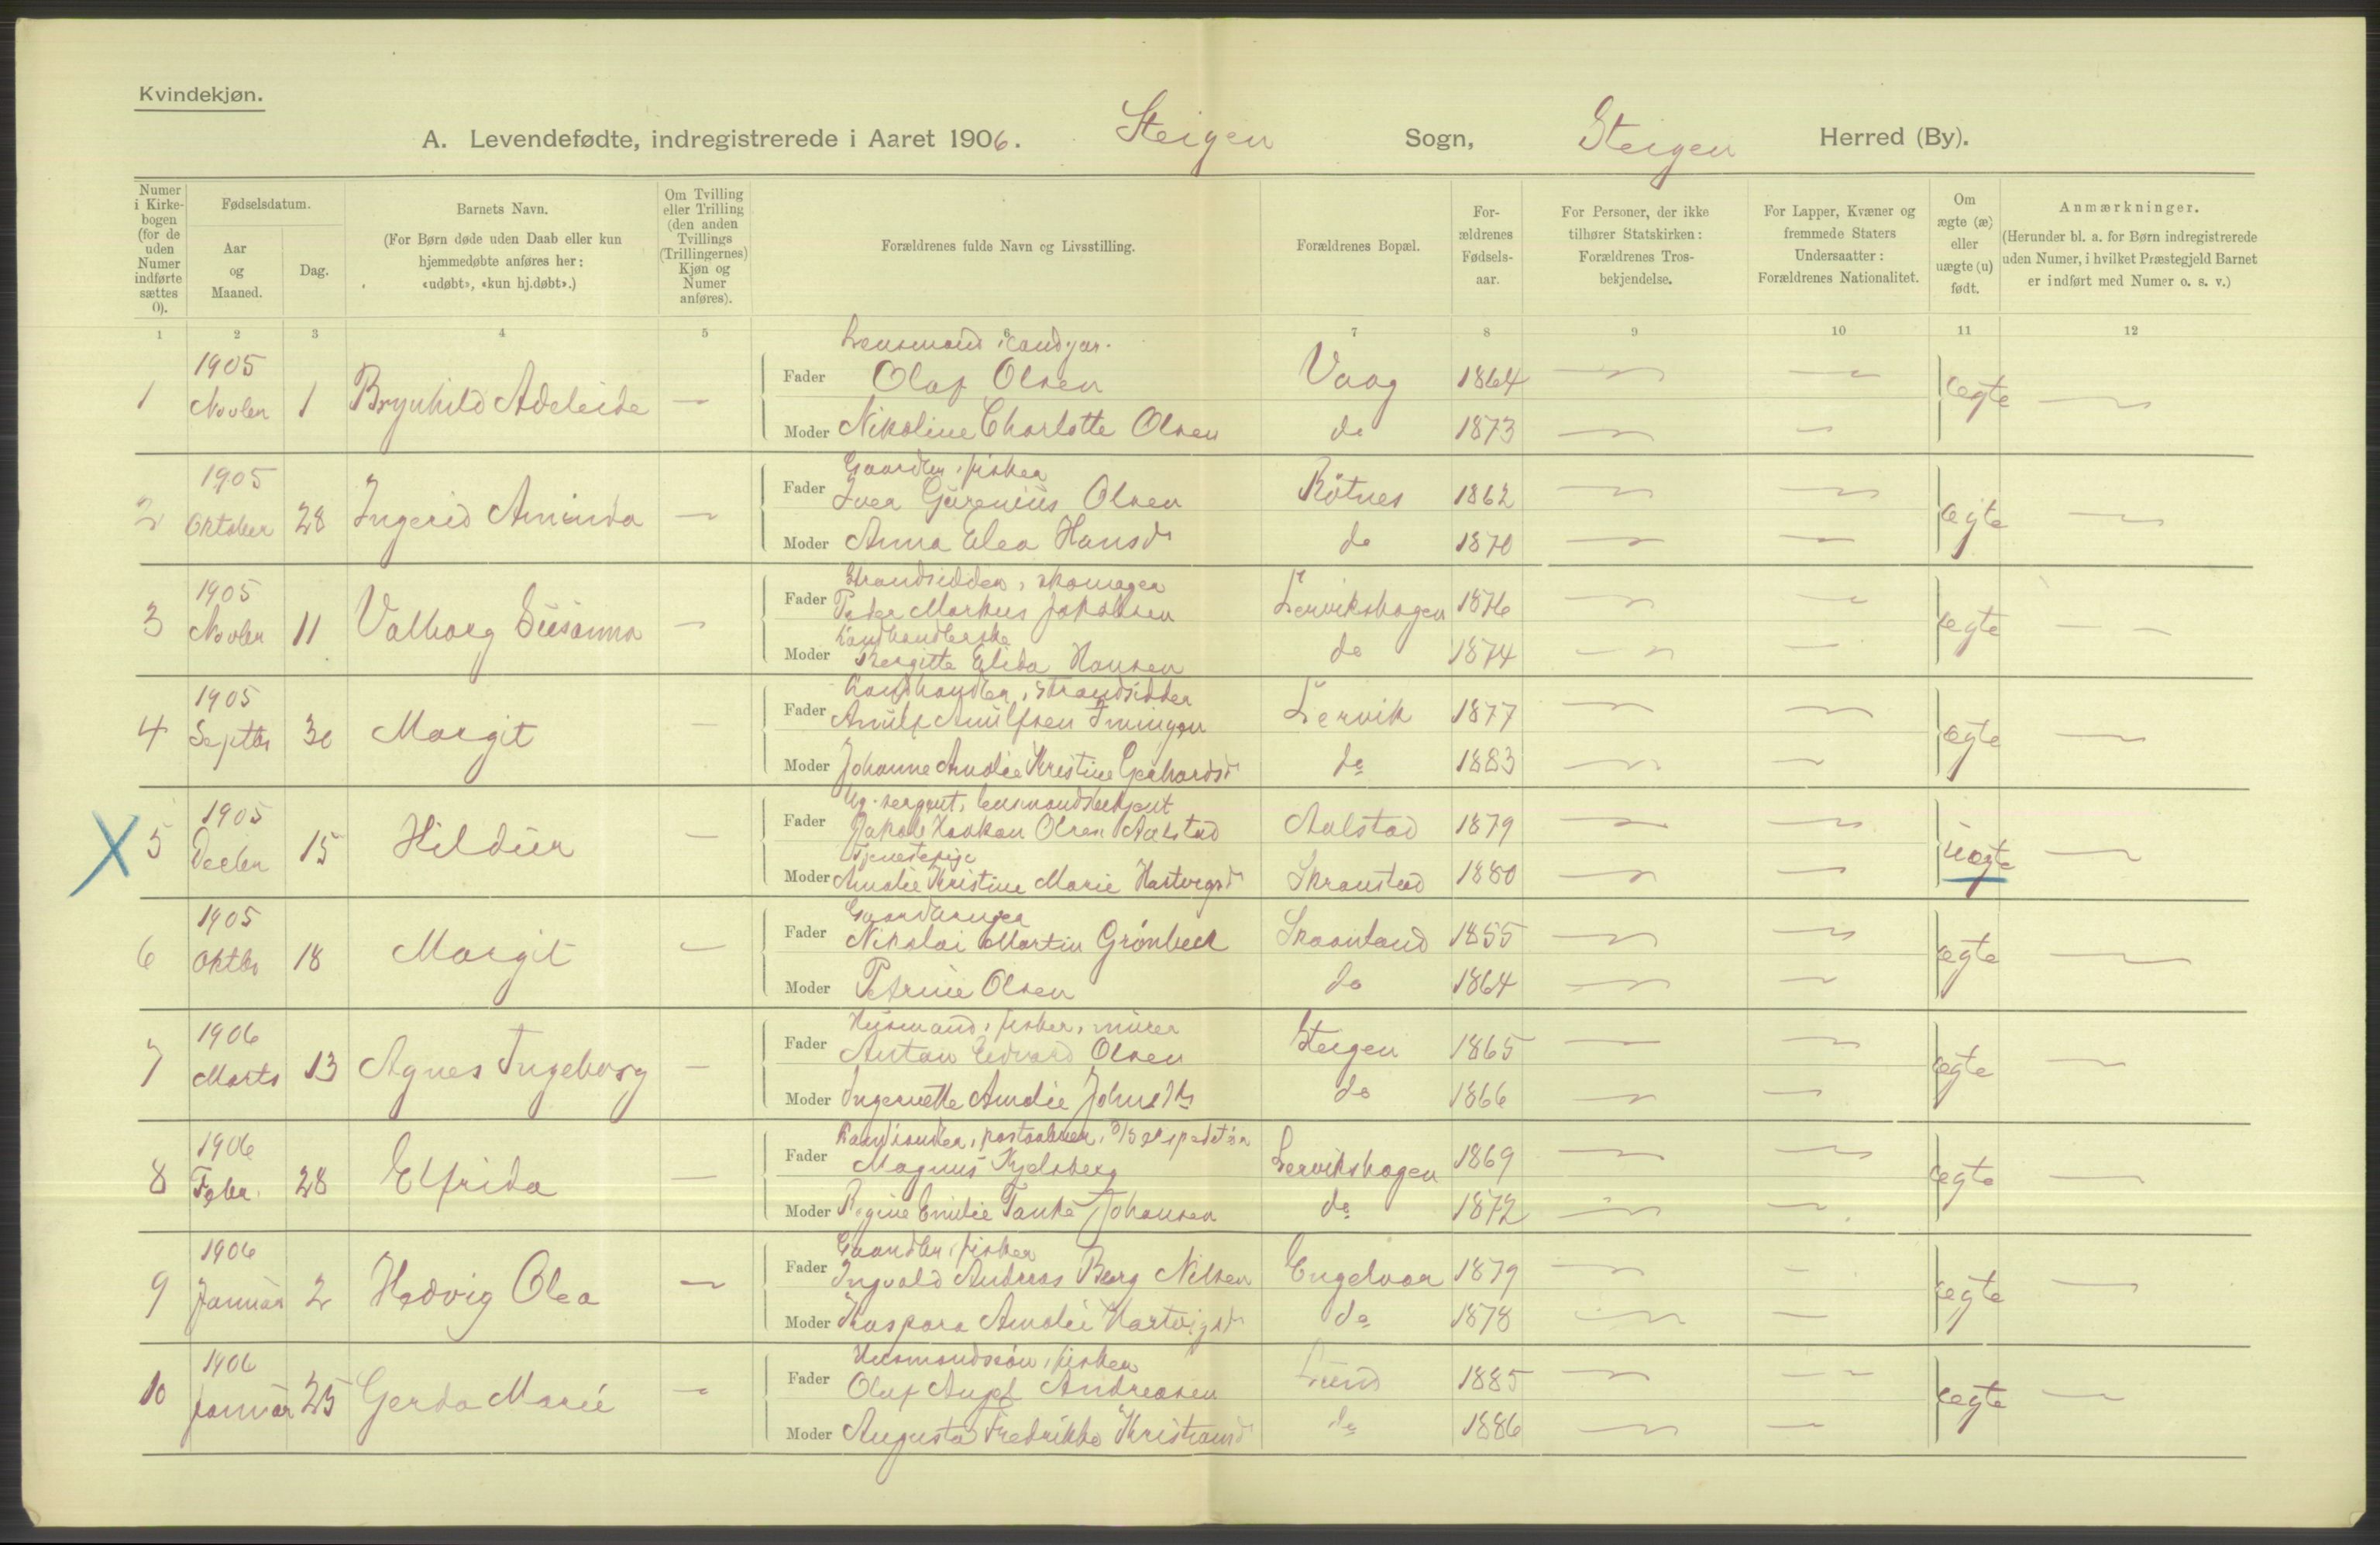 Kvindekjøn.
A. Levendefødte, indregistrerede i Aaret 1906. Steigen Sogn, Steigen Herred (By).
Numer i Kirkebogen (for de uden Numer indførte sættes 0).
Fødselsdatum.
Aar og Maaned.
Dag.
Barnets Navn.
(For Børn døde uden Daab eller kun hjemmedøbte anføres her: «udøbt», «kun hj.døbt».)
Om Tvilling eller Trilling (den anden Tvillings (Trillingernes) Kjøn og Numer anføres).
Forældrenes fulde Navn og Livsstilling.
Forældrenes Bopæl.
Forældrenes Fødselsaar.
For Personer, der ikke tilhører Statskirken: Forældrenes Trosbekjendelse.
For Lapper, Kvæner og fremmede Staters Undersaatter: Forældrenes Nationalitet.
Om ægte (æ) eller uægte (u) født.
Anmærkninger.
(Herunder bl. a. for Børn indregistrerede uden Numer, i hvilket Præstegjeld Barnet er indført med Numer o. s. v.)
1 2 3 4 5 6 7 8 9 10 11 12
Lensmand, cand. jur.
1 1905 Novbr 1 Brynhild Adeleide — Fader Olaf Olsen Vaag 1864 — — ægte —
Moder Nikoline Charlotte Olsen do 1873 — —
Gaardbr, fisker
2 1905 Oktober 28 Ingerid Aminda — Fader Iver Gurenius Olsen Røtnes 1862 — — ægte —
Moder Anna Elea Hansdr do 1870 — —
Strandsidder, skomager
3 1905 Novbr 11 Valborg Susanna — Fader Peder Markus Jakobsen Lervikshagen 1876 — — ægte — —
Landhandlerske
Moder Bergitte Elida Hansen do 1874 — —
Landhandler, strandsidder
4 1905 Septbr 30 Margit — Fader Arnulf Arnulfsen Lervik 1877 — — ægte —
Moder Johanne Amalie Kristine Gerhardsdr do 1883 — —
sergent, lensmandsbetjent
X 5 1905 Decbr 15 Hildur — Fader Jakob Haakon Olsen Aalstad Aalstad 1879 — — uægte —
Tjenestepige
Moder Amalie Kristine Marie Hartvigsdr Skranstad 1880 — —
Gaardbruger
6 1905 Oktbr 18 Margit — Fader Nikolai Martin Grønbeck Skaanland 1855 — — ægte —
Moder Petrine Olsen do 1864 — —
Husmand, fisker, murer
7 1906 Marts 13 Agnes Ingeborg — Fader Anton Edvard Olsen Steigen 1865 — — ægte —
Moder Ingernette Amalie Johnsdtr do 1866 — —
Landhandler, postaabner, D/S ekspeditør
8 1906 Febr. 28 Elfrida — Fader Magnus Kjelsberg Lervikshagen 1869 — — ægte —
Moder Regine Emilie Tanke Johansen do 1872 — —
Gaardbr, fisker
9 1906 Januar 2 Hedvig Olea — Fader Ingvald Andreas Berg Nilsen Engelvær 1879 — — ægte —
Moder Kaspara Amalie Hartvigsdr do 1878 — —
Husmandssøn, fisker
10 1906 Januar 25 Gerda Marie — Fader Olaf Andreasen Lund 1885 — — ægte —
Moder Augusta Fredrikke Kristiansdr do 1886 — —